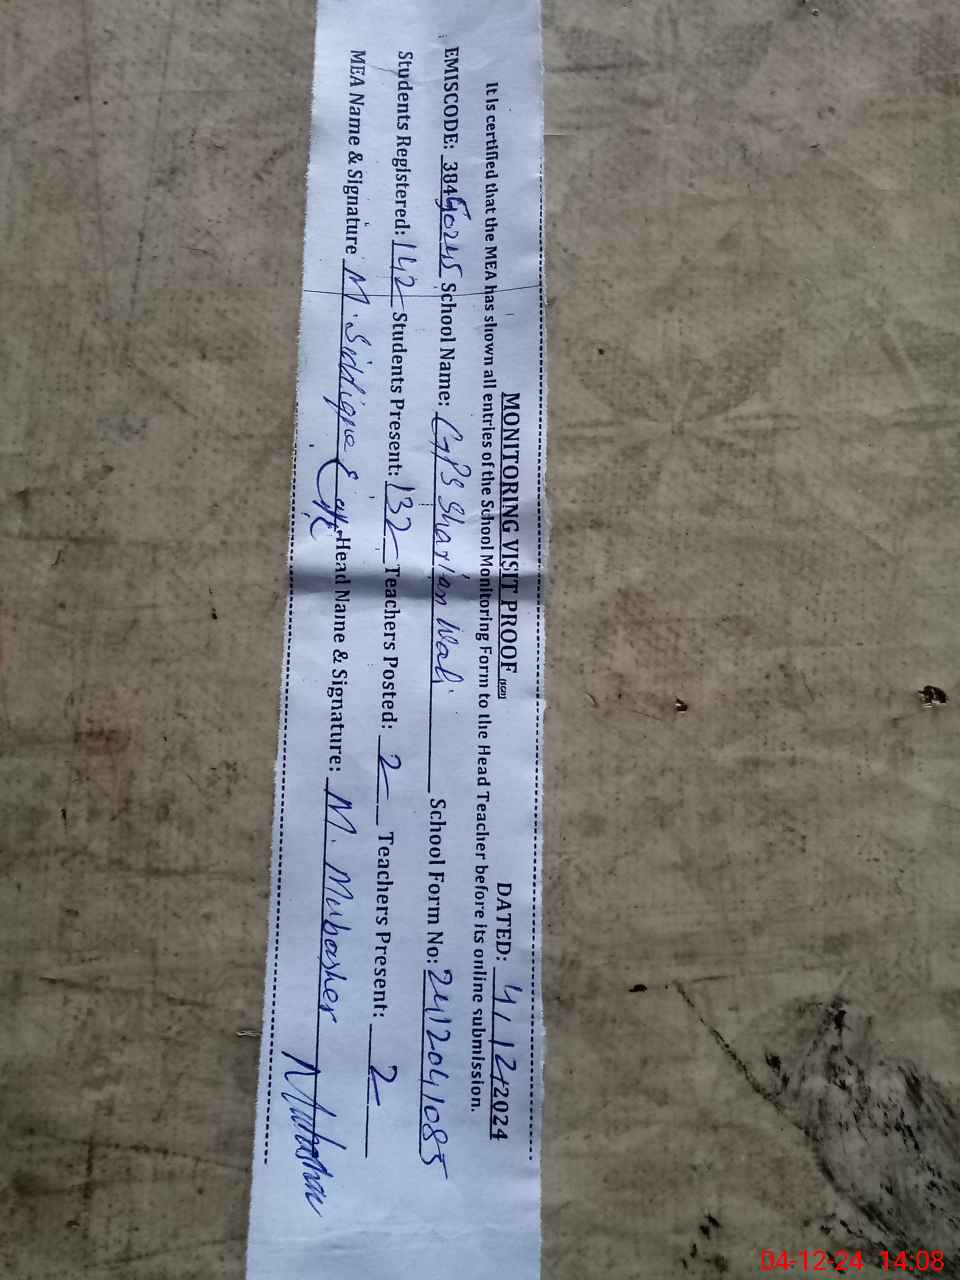 MONITORING VISIT PROOF DATED: 4/12/2024
It Is certified that the MEA has shown all entries of the School Monitoring Form to the Head Teacher before its online submission.
EMISCODE: 38450245 School Name: GPS Sharian Wali School Form No: 2412041085
Students Registered: 142 Students Present: 132 Teachers Posted: 2 Teachers Present: 2
MEA Name & Signature M. Siddique Head Name & Signature: M. Mubasher Mubasher
04-12-24 14:08